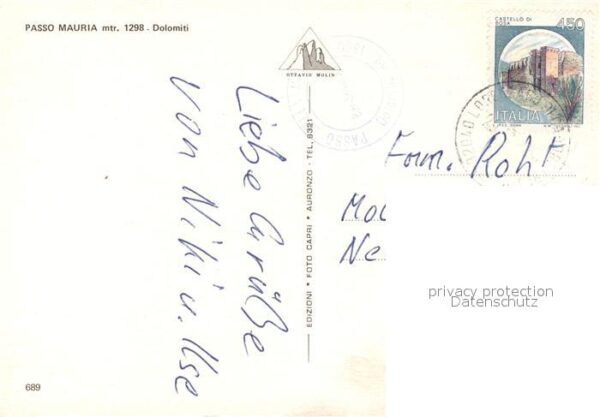 PASSO MAURIA mtr. 1298 - Dolomiti
OTTAVIO MOLIN
CASTELLO DI
BOSA
450
ITALIA
PASSO
Liebe Grüße
von Niki u. Ilse
EDIZIONI * FOTO CAPRI * AURONZO - TEL. 6321
Fam. Roht
Mo
Ne
privacy protection
Datenschutz
689